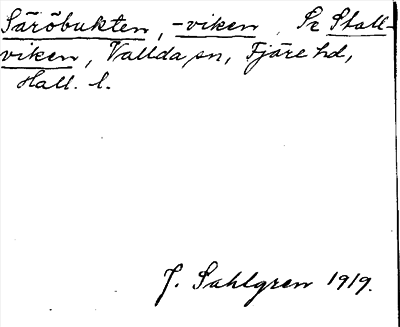 Säröbukten, -viken. Se Stall-
viken, Vallda sn, Fjäre hd,
Hall. l.
J. Sahlgren 1919.